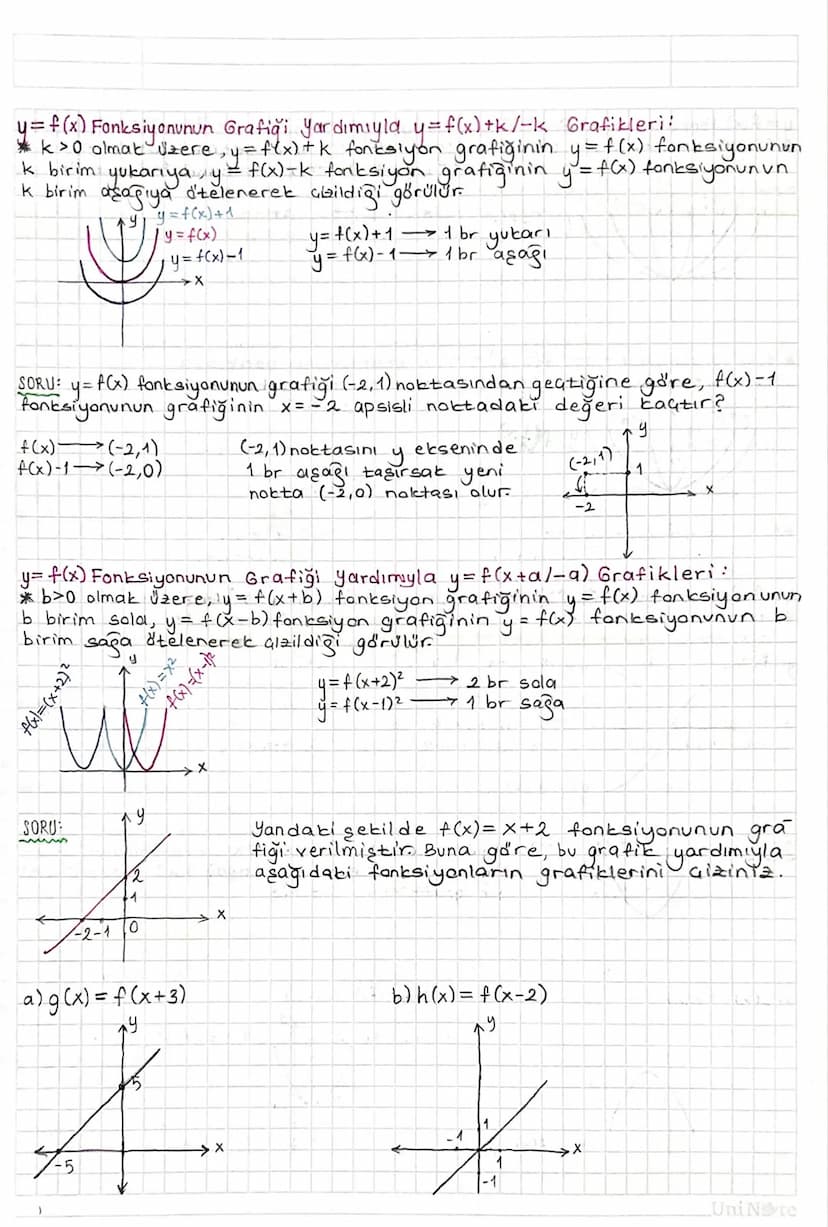 y=f(x) Fonksiyonunun Grafiği Yardımıyla y=f(x)+k/-k Grafikleri:
* k>0 olmak üzere, y=f(x)+k fonksiyon grafiğinin y=f(x) fonksiyonunun
k birim yukarıya, y=f(x)-k fonksiyon grafiğinin y=f(x) fonksiyonunun
k birim aşağıya ötelenerek çizildiği görülür.
y
y=f(x)+1
y=f(x)
y=f(x)-1
x
y=f(x)+1 → 1 br yukarı
y=f(x)-1 → 1 br aşağı
SORU: y=f(x) fonksiyonunun grafiği (-2,1) noktasından geçtiğine göre, f(x)-1
fonksiyonunun grafiğinin x=-2 apsisli noktadaki değeri kaçtır?
f(x) → (-2,1)
f(x)-1 → (-2,0)
(-2,1) noktasını y ekseninde
1 br aşağı taşırsak yeni
nokta (-2,0) noktası olur.
y
(-2,1)
1
x
-2
y=f(x) Fonksiyonunun Grafiği Yardımıyla y=f(x+a/-a) Grafikleri:
* b>0 olmak üzere, y=f(x+b) fonksiyon grafiğinin y=f(x) fonksiyonunun
b birim sola, y=f(x-b) fonksiyon grafiğinin y=f(x) fonksiyonunun b
birim sağa ötelenerek çizildiği görülür.
y
f(x)=(x+2)²
f(x)=x²
f(x)=(x-1)²
x
y=f(x+2)² → 2 br sola
y=f(x-1)² → 1 br sağa
SORU:
y
2
1
x
-2 -1 0
Yandaki şekilde f(x)=x+2 fonksiyonunun gra-
fiği verilmiştir. Buna göre, bu grafik yardımıyla
aşağıdaki fonksiyonların grafiklerini çiziniz.
a) g(x)=f(x+3)
y
5
x
-5
b) h(x)=f(x-2)
y
1
-1
x
1
-1
UniNote